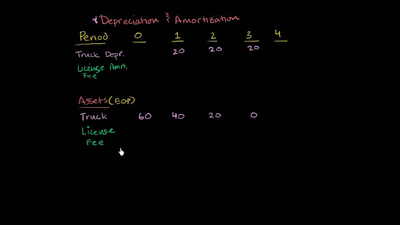 * Depreciation & Amortization
Period 0 1 2 3 4
Truck Depr. 20 20 20
License Amrt.
Fee
Assets (EOP)
Truck 60 40 20 0
License
Fee